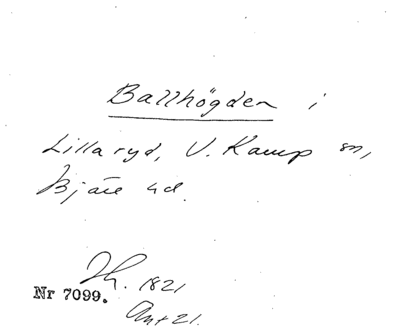 Ballhögden i
Lillaryd, V. Karup sn,
Bjäre hd.
Th. 1821
Nr 7099.
Ant 21.